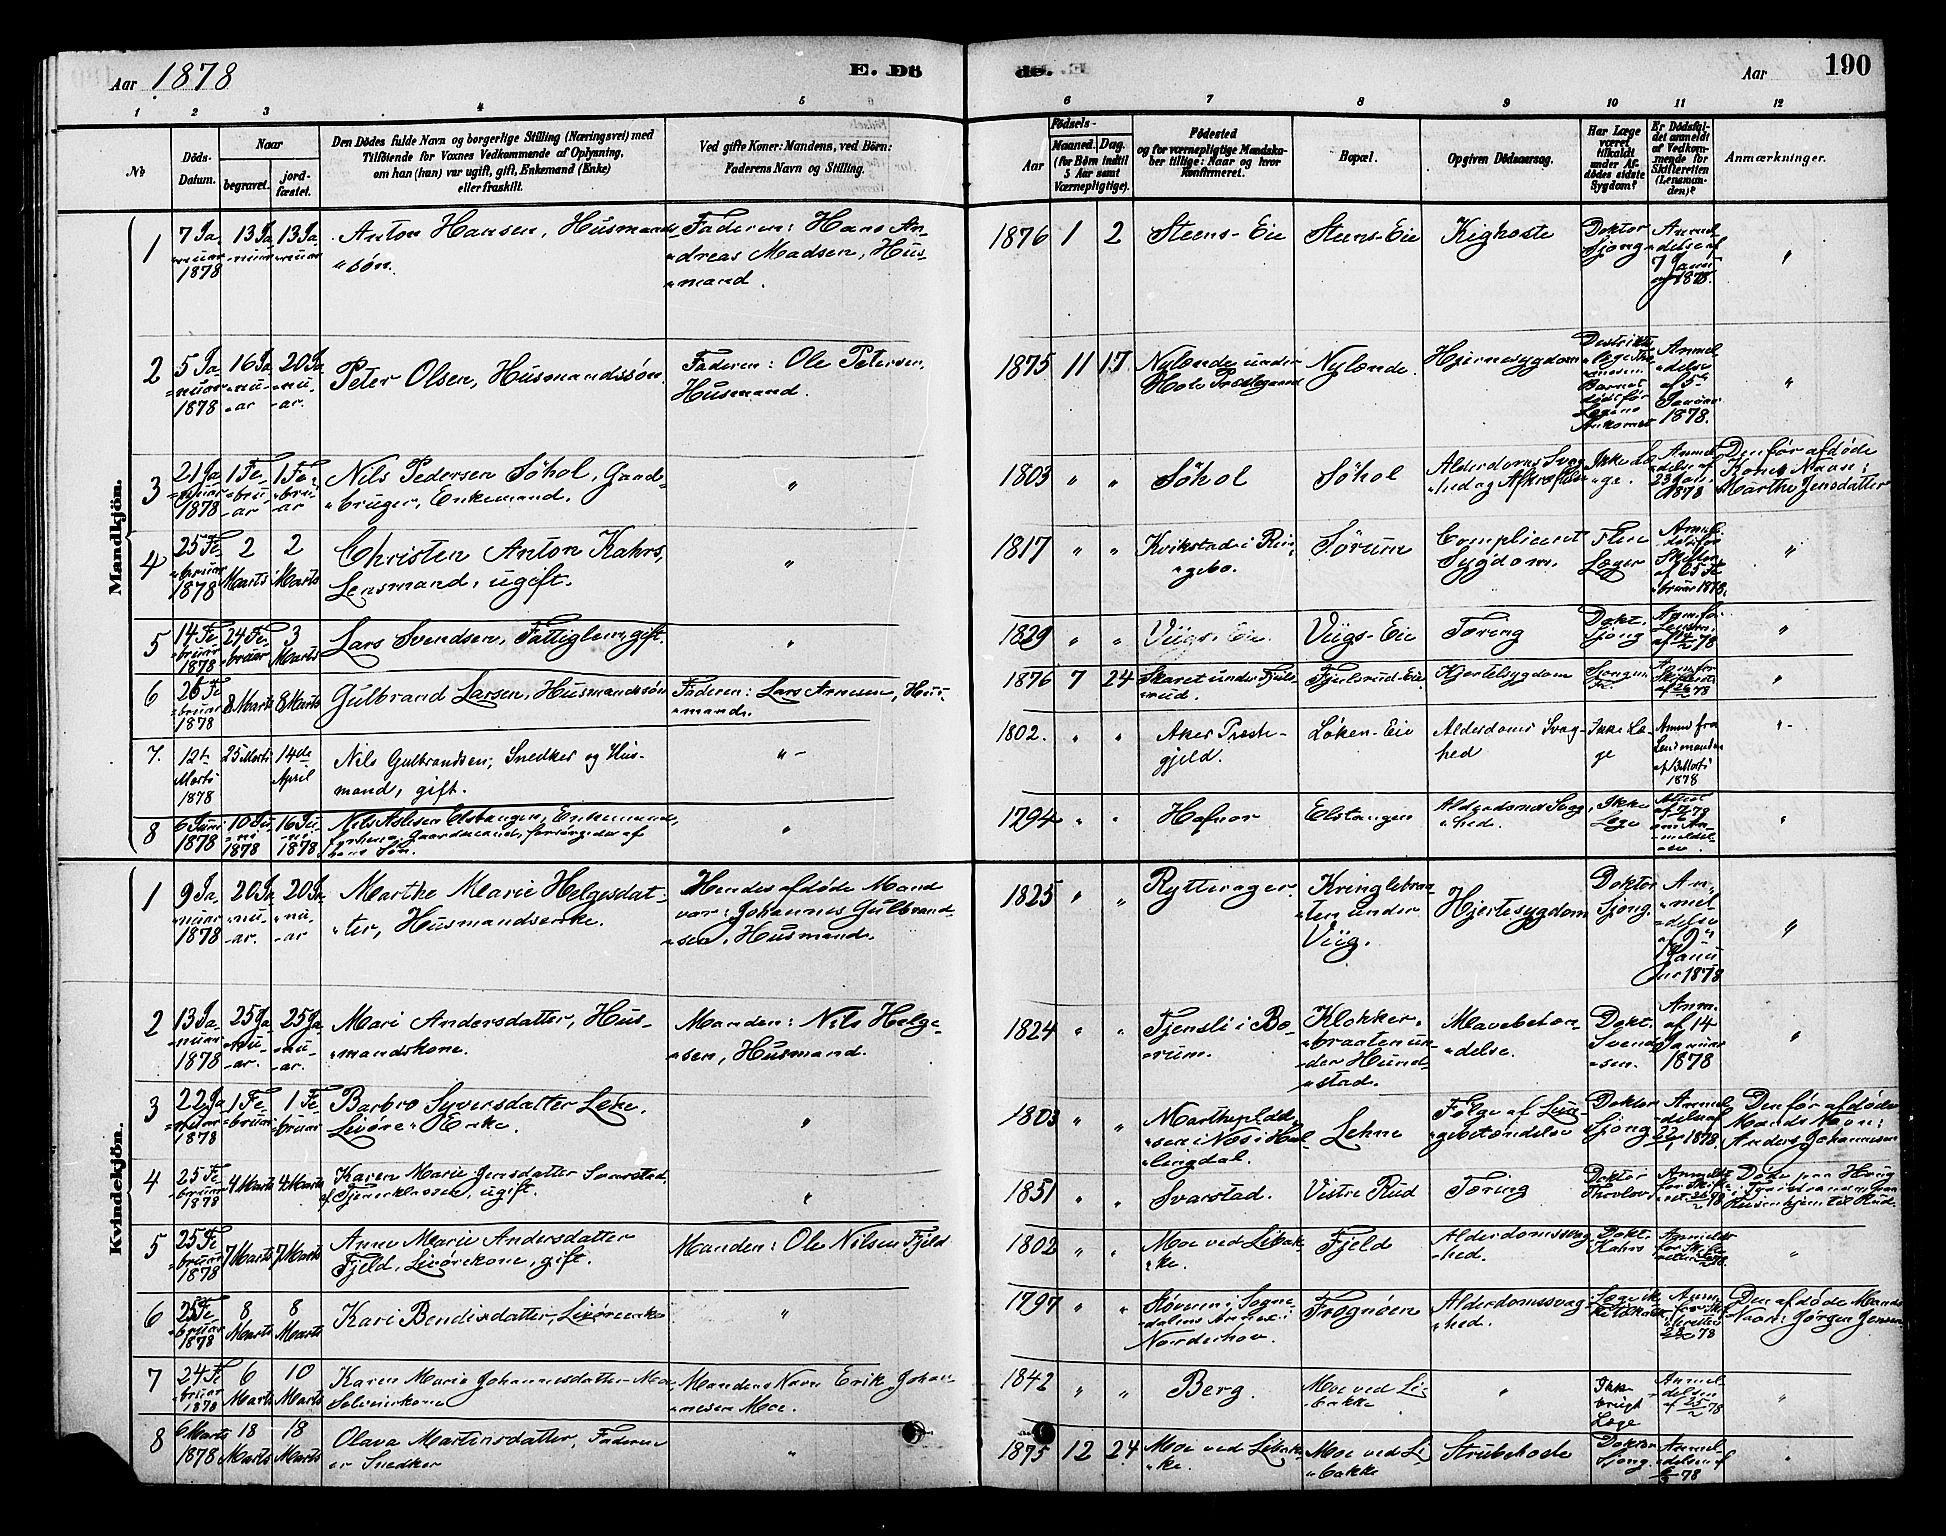 Aar 1878
E. Dö
de.
Aar
190
1 2 3 4 5 6 7 8 9 10 11 12
No
Döds-Datum.
Naar
begravet.
jord-fæstet.
Den Dödes fulde Navn og borgerlige Stilling (Næringsvei) med
Tilföiende for Voxnes Vedkommende af Oplysning,
om han (hun) var ugift, gift, Enkemand (Enke)
eller fraskilt.
Ved gifte Koner: Mandens, ved Börn:
Faderens Navn og Stilling.
Födsels-
Aar
Maaned. Dag.
(for Börn indtil
5 Aar samt
Værnepligtige).
Födested
og for værnepligtige Mandska-
ber tillige: Naar og hvor
konfirmeret.
Bopæl.
Opgiven Dödsaarsag.
Har Læge
været
tilkaldt
under Af-
dödes sidste
Sygdom?
Er Dödsfal-
det anmeldt
af Vedkom-
mende for
Skifteretten
(Lensman-
den)?
Anmærkninger.
Mandkjön.
1 7 Januar 1878 13 Januar 13 Januar Anton Hansen, Husmandssön. Faderen: Hans Andreas Madsen, Husmand. 1876 1 2 Steens-Eie Steens-Eie Kighoste Doktor Sjong Anmeldelse af 7 Januar 1878. "
2 5 Januar 1878 16 Januar 20 Januar Peter Olsen, Husmandssön. Faderen: Ole Petersen, Husmand. 1875 11 17 Nylænde under Hole Præstegaard Nylænde. Hjernesygdom Barnet död før Lægens Ankomst Anmeldelse af 5 Januar 1878. "
3 21 Januar 1878 1 Februar 1 Februar Nils Pedersen Söhol, Gaardbruger, Enkemand. " 1803 " " Söhol Söhol Alderdoms Svaghed og Afkræftelse Ikke Læge. Anmeldelse af 23 Jan. 1878 Den før afdöde Kones Navn: Marthe Jensdatter
4 25 Februar 1878 2 Marts 2 Marts Christen Anton Kahrs, Lensmand, ugift. " 1817 " " Kvikstad i Ringebo. Sörum Compliceret Sygdom. Flere Læger af 25 Februar 1878. "
5 14 Februar 1878 24 Februar 3 Marts Lars Svendsen, Fattiglem, gift. " 1829 " " Viigs-Eie. Viigs-Eie Tæring Dokt. Sjong "
6 26 Februar 1878 8 Marts 8 Marts Gulbrand Larsen, Husmandssön Faderen: Lars Arnesen, Husmand. 1876 7 24 Skaret under Fjeldsrud. Kjertelsygdom "
7. 12te Marts 1878 25 Marts 14de April Nils Gulbrandsen, Snedker og Husmand, gift. " 1802. " " Aker Præstegjeld. Løken-Eie Alderdoms Svaghed Ikke Læge Anmel fra Lensmanden af Marts 1878 "
8 6 Juni 1878 10 Juni 1878 16 Juni 1878 Nils Aslesen Elstangen, Enkemand, forhen Gaardmand, forsörges af hans Sön. " 1794 " " Hafnor Elstangen Alderdoms Svaghed. Ikke Læge "
Kvindekjön.
1 9 Januar 1878 20 Januar. 20 Januar Marthe Marie Helgesdatter, Husmandsenke. Hendes afdöde Mand var: Johannes Gulbrandsen, Husmand. 1825 " " Rytterager. Kringlebraaten under Viig. Hjertesygdom Doktor Sjong. Anmeldelse af 9 Januar 1878 "
2 13 Januar 1878 25 Januar. 25 Januar. Mari Andersdatter, Husmandskone. Manden: Nils Helgesen, Husmand. 1824 " " Tjensli i Bærum. Klokkerbraaten under Hundstad. Mavebetændelse. Dokt. Svendsen. Anm. af 14 Januar 1878 "
3 22 Januar 1878 1 Februar 1 Februar Barbro Syversdatter Lehne, Enke. " 1803 " " i Næs i Hallingdal. Lehne Følge af Lungebetændelse Doktor Sjong Anmeldelse af 22/1 1878. Den før afdöde Mands Navn: Anders Johannesen
4 25 Februar 1878 4 Marts 4 Marts Karen Marie Jensdatter Svarstad, af Tjenerklassen, ugift. " 1851 " " Svarstad. Vestre Rud Tæring Doktor Thovlov
5 25 Februar 1878 7 Marts 7 Marts Anne Marie Andersdatter Fjeld, Leiörskone, gift. Manden: Ole Nilsen Fjeld 1802 " " Moe ved Libakke. Fjeld Alderdomssvaghed. Dokt. Kahrs "
6 25 Februar 1878 8 Marts 8 Marts Kari Bendiksdatter, Leiörenke " 1797 " " i Sognedalens Annex i Norderhov. Frognøen Alderdomssvaghed. Den afdöde Mands Navn: Jörgen Jensen
7 24 Februar 1878 6 Marts 10 Marts Karen Marie Johannesdatter Moe Selveierkone Mandens Navn Erik Johannesen Moe. 1842 " " Berg. Moe ved Libakke " Ikke brugt Læge Anmeldelse af 25/2 78 "
8 6 Marts 1878 18 Marts 18 Marts Olava Martinsdatter, Faderen er Snedker " 1875 12 24 Moe ved Libakke. Moe ved Libakke Strubehoste Doktor Sjong. Anmeldelse af 78 "